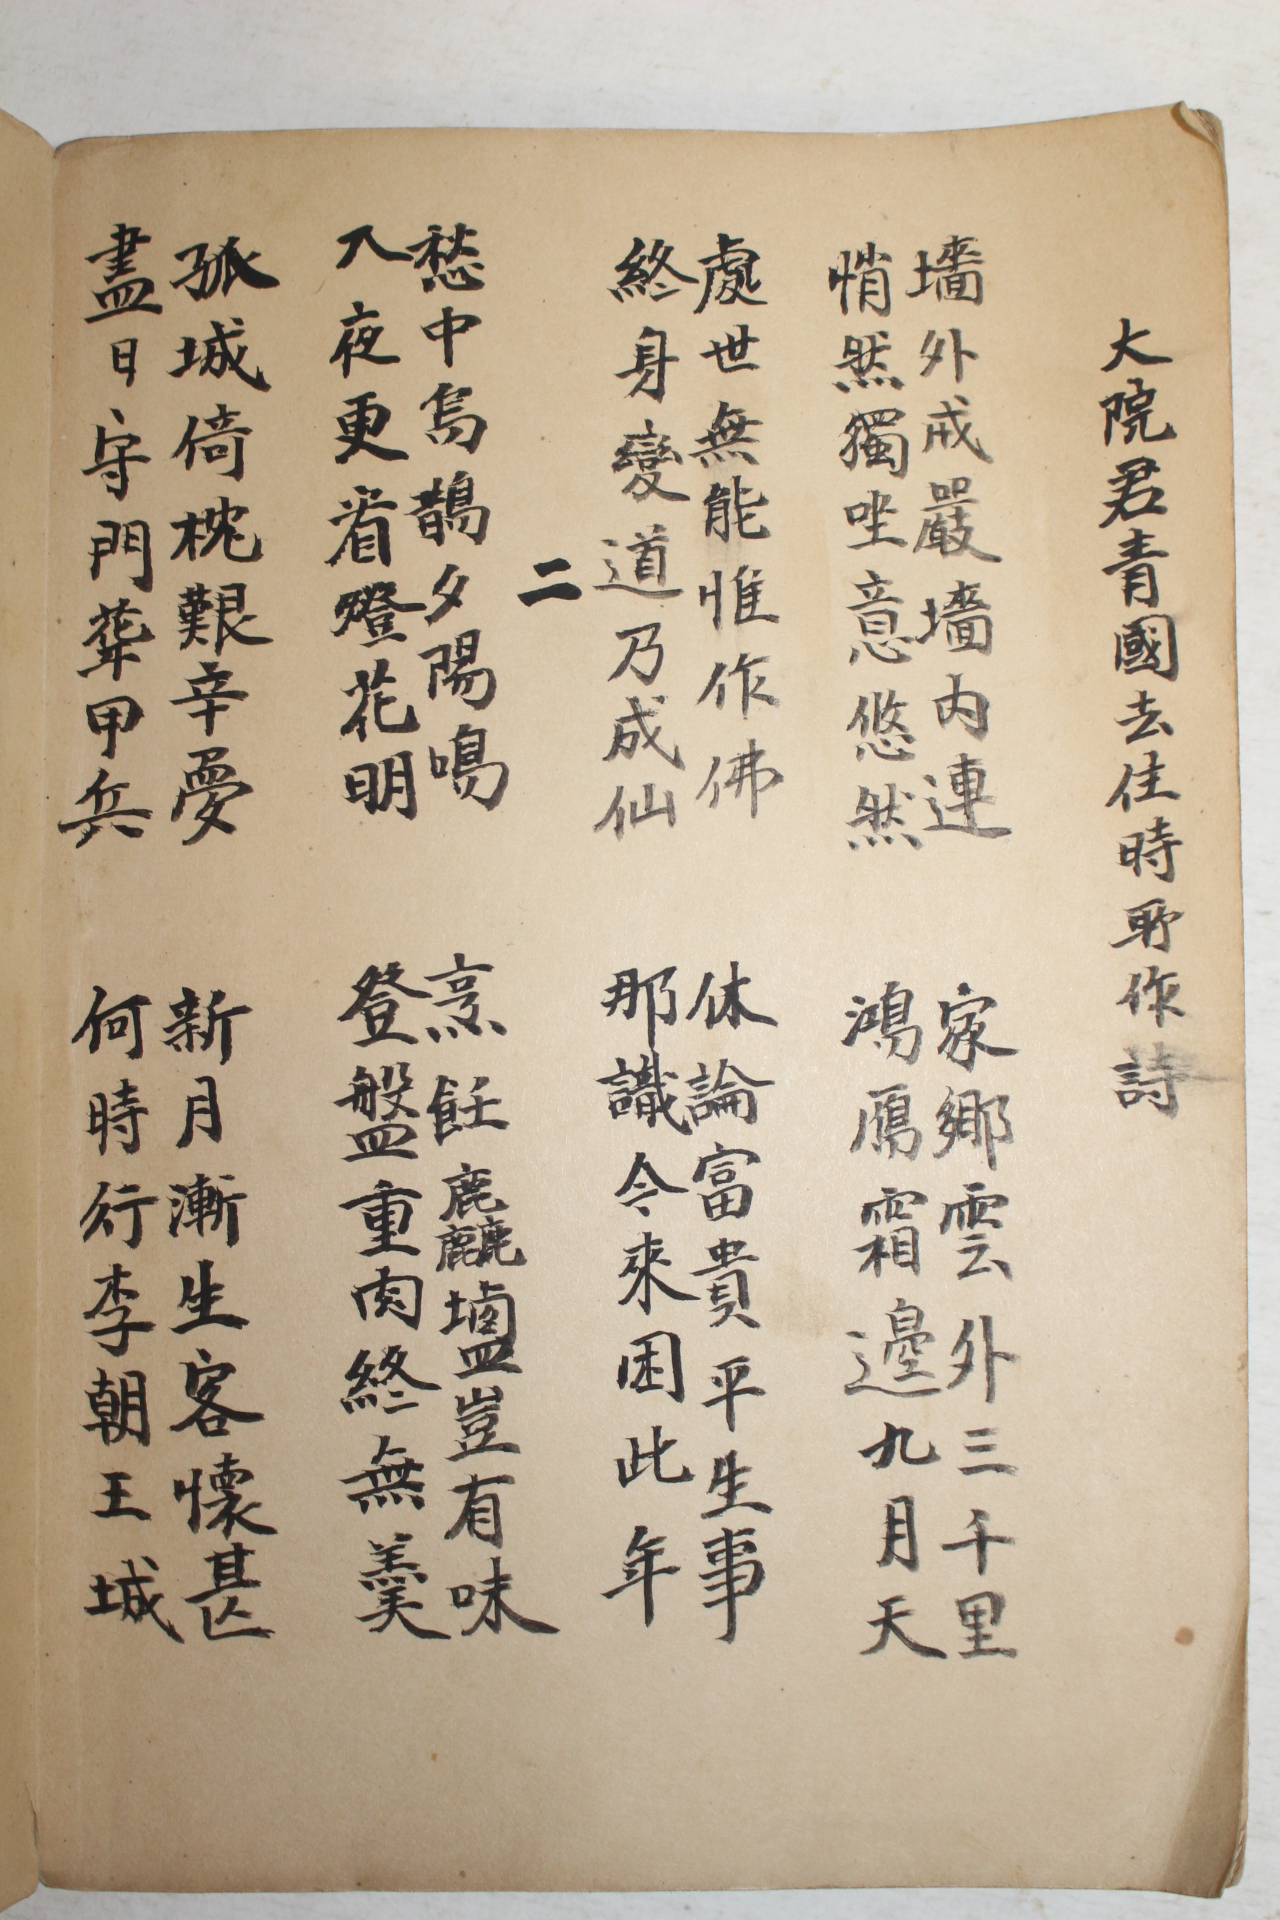 大院君青國去住時所作詩
墻外戒嚴墻內連 家鄉雲外三千里
悄然獨坐意悠然 鴻鴈霜邊九月天
處世無能惟作佛 休論富貴平生事
終身變道乃成仙 那識今來困此年
二
愁中烏鵲夕陽鳴 烹飪麤鹽豈有味
入夜更看燈花明 登盤重肉終無羹
孤城倚枕艱辛夢 新月漸生客懷甚
盡日守門甲兵 何時行李朝王城